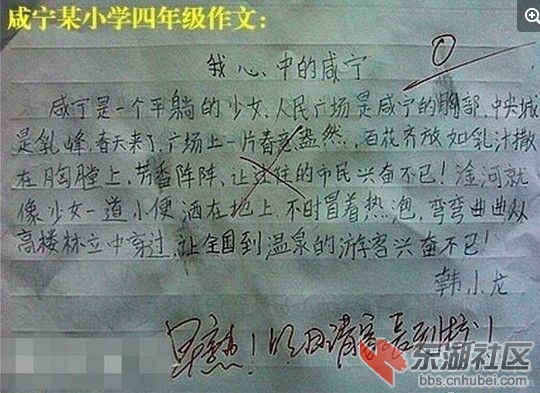 咸宁某小学四年级作文：
0
我心中的咸宁
咸宁是一个平躺的少女，人民广场是咸宁的胸部，中央城
是乳峰，春天来了，广场上一片春意盎然，百花齐放如乳汁撒
在胸膛上，芳香阵阵、让过往的市民兴奋不已！淦河就
像少女一道小便洒在地上，不时冒着热泡，弯弯曲曲从
高楼林立中穿过，让全国到温泉的游客兴奋不已！
韩小龙
早熟！明日请家长到校！
东湖社区
bbs.cnhubei.com